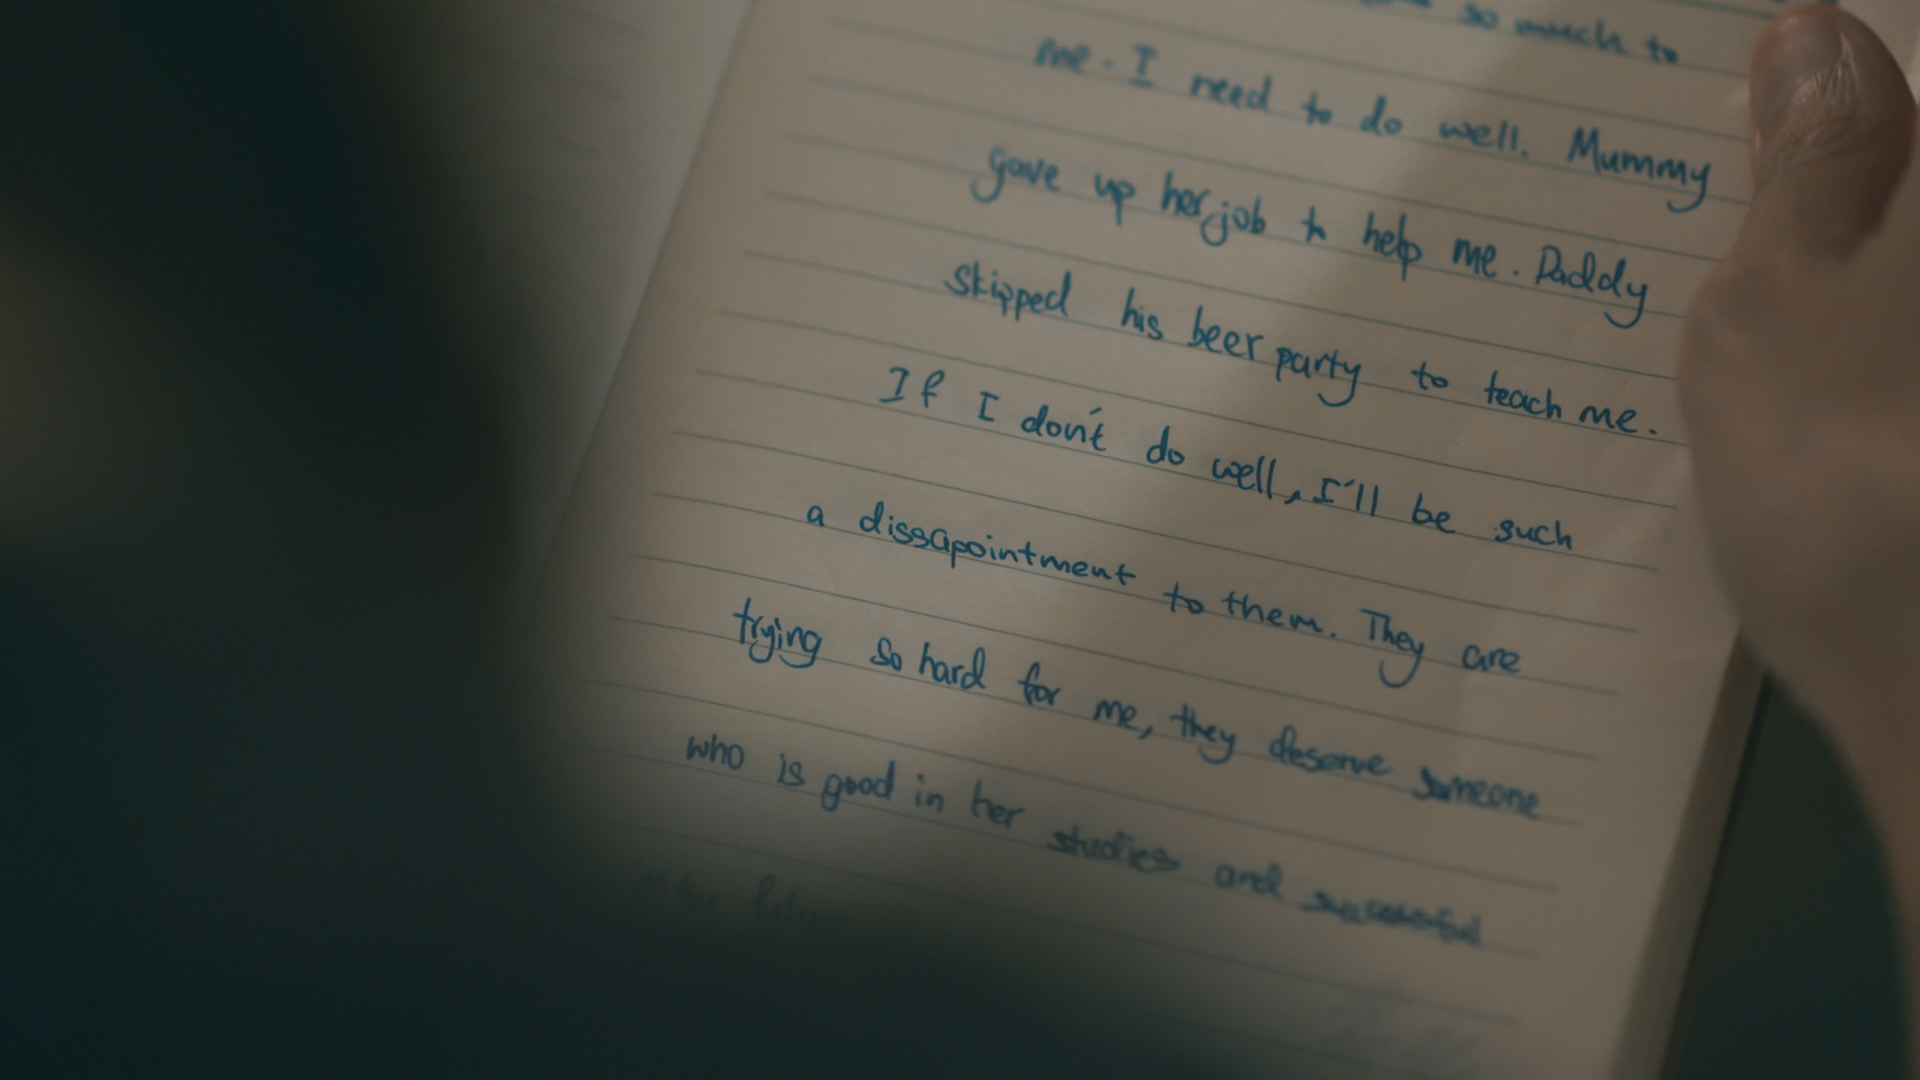 so much to
me. I need to do well. Mummy
gave up her job to help me. Daddy
skipped his beer party to teach me.
If I don't do well, I'll be such
a dissapointment to them. They are
trying so hard for me, they deserve someone
who is good in her studies and successful
in the future